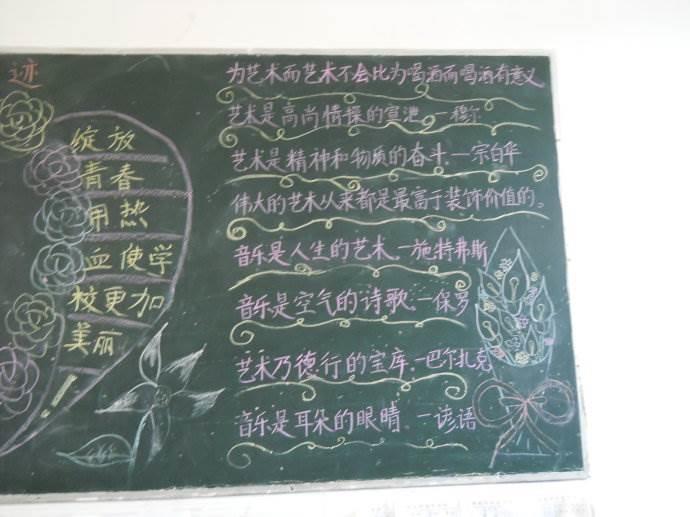 迹
绽放
青春
用热
血使学
校更加
美丽
!
为艺术而艺术不会比为喝酒而喝酒有意义
艺术是高尚情操的宣泄.一穆尔
艺术是精神和物质的奋斗.一宗白华
伟大的艺术从来都是最高于装饰价值的。
音乐是人生的艺术.一施特弗斯
音乐是空气的诗歌.一保罗
艺术乃德行的宝库.一巴尔扎克
音乐是耳朵的眼睛.一谚语